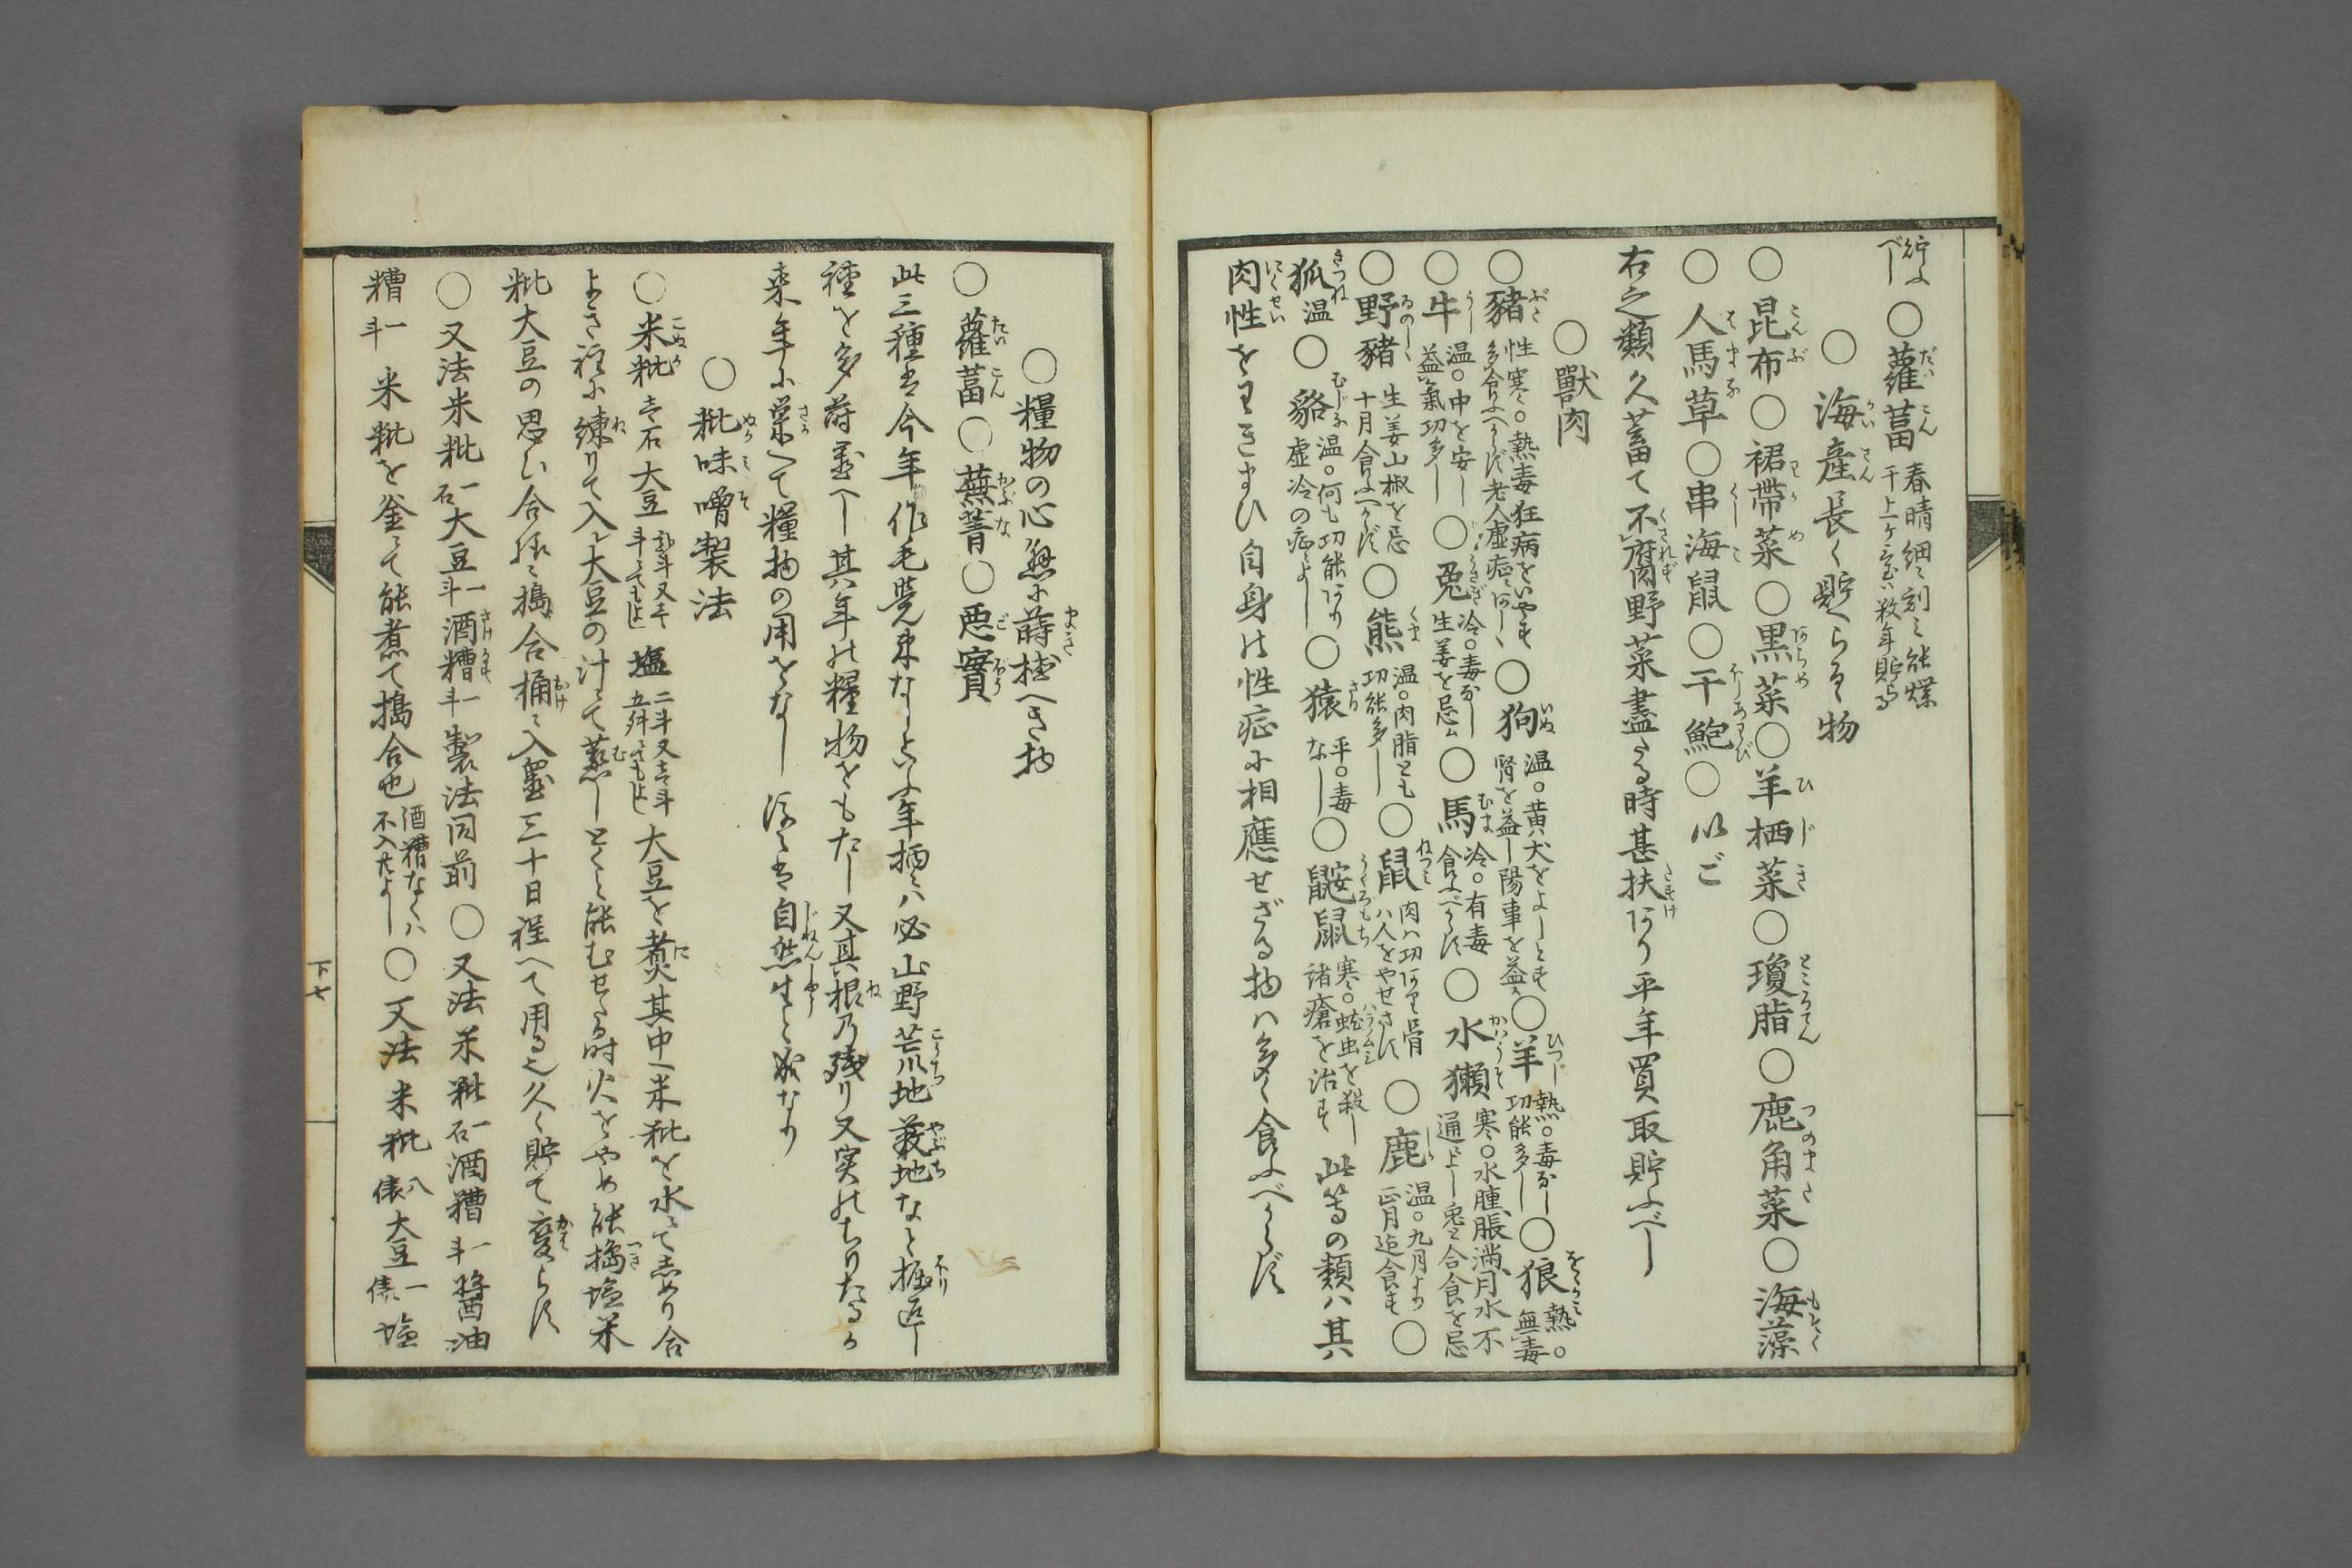 貯ふべし○蘿蔔 春晴細く刻ミ能煠干上ケ置バ数年貯る
○海産長く貯らるゝ物
○昆布○裙帶菜○黒菜○羊栖菜○瓊脂○鹿角菜○海藻
○人馬草○串海鼠○干鮑○いご
右之類久蓄て不腐野菜盡たる時甚扶アリ平年買取貯ふべし
○獸肉
○豬 性寒○熱毒狂病をいやす多食ふべからず老人虚症ニあしく○狗 温○黄犬をよしとす腎を益し陽事を益ス○羊 熱○毒なし功能多し○狼 熱○無毒
○牛 温○中を安し益氣功多し○兎 冷○毒なし生姜を忌ム○馬 冷○有毒食ふべからず○水獺 寒○水腫脹満月水不通ニよし兎と合食を忌
○野豬 生姜山椒を忌十月食ふべからず○熊 温○肉脂とも功能多し○鼠 肉ハ功アリ骨ハ人をやせさす○鹿 温○九月より正月迄食す○
狐 温○貉 温○何も功能アリ虚冷の症によし○猿 平○毒なし○鼴鼠 寒○蚘虫を殺し諸瘡を治す 此等の類ハ其
肉性をわきまひ自身の性症に相應せざる物ハ多く食ふべからず
○糧物の心懸に蒔植べき物
○蘿蔔○蕪菁○悪實
此三種は今年作毛覚束なしといふ年柄ニハ必山野荒地藪地なと掘返し
種を多蒔置べし其年の糧物をもたし又其根の残り又実のちりたるか
来年に栄へて糧物の用をなし後には自然生と成なり
○粃味噌製法
○米粃 壱石 大豆 弐斗又壱斗にてもよし 塩 二斗又壱斗五舛にてもよし 大豆を煑其中へ米粃を水にて志めり合
よき程に練りて入レ大豆の汁にて蒸しとくと能むせたる時火をやめ能搗塩米
粃大豆の思ひ合様ニ搗合桶ニ入置三十日程へて用る也久く貯て変らず
○又法米粃一石大豆一斗酒糟一斗製法同前○又法米粃一石酒糟一斗醤油
糟一斗米粃を釜にて能煮て搗合也 酒糟なくハ不入共よし○又法米粃八俵大豆一俵塩
下七